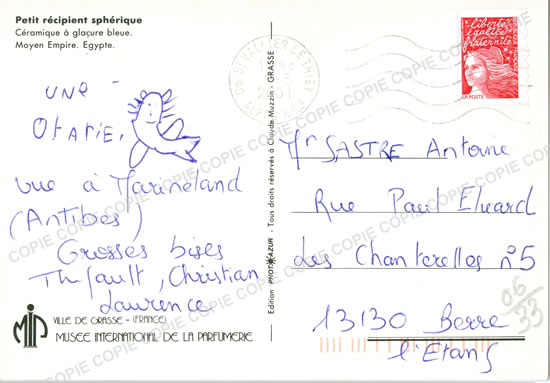 Petit récipient sphérique
Céramique à glaçure bleue.
Moyen Empire. Egypte.
une
Otarie,
vue à Marineland
(Antibes)
Grosses bises
Thifault, Christian
Laurence
MIP
VILLE DE GRASSE - (FRANCE)
MUSEE INTERNATIONAL DE LA PARFUMERIE
Edition PHOT'AZUR - Tous droits réservés à Claude Muzzin - GRASSE
06 ST VALLIER DE THIEY
liberté
égalité
fraternité
LA POSTE
Mr SASTRE Antoine
Rue Paul Eluard
Les Chanterelles n°5
13130 Berre
l'Etang
06/33
COPIE COPIE COPIE COPIE COPIE